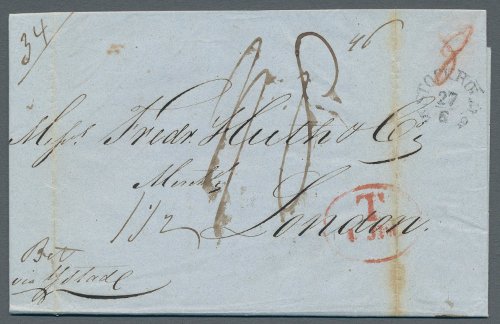 34
46
8
STOCKHOLM
27
6
Messrs Fredk Huth & Co
Merchts
1 1/2
London.
T
Bet
via Ystad